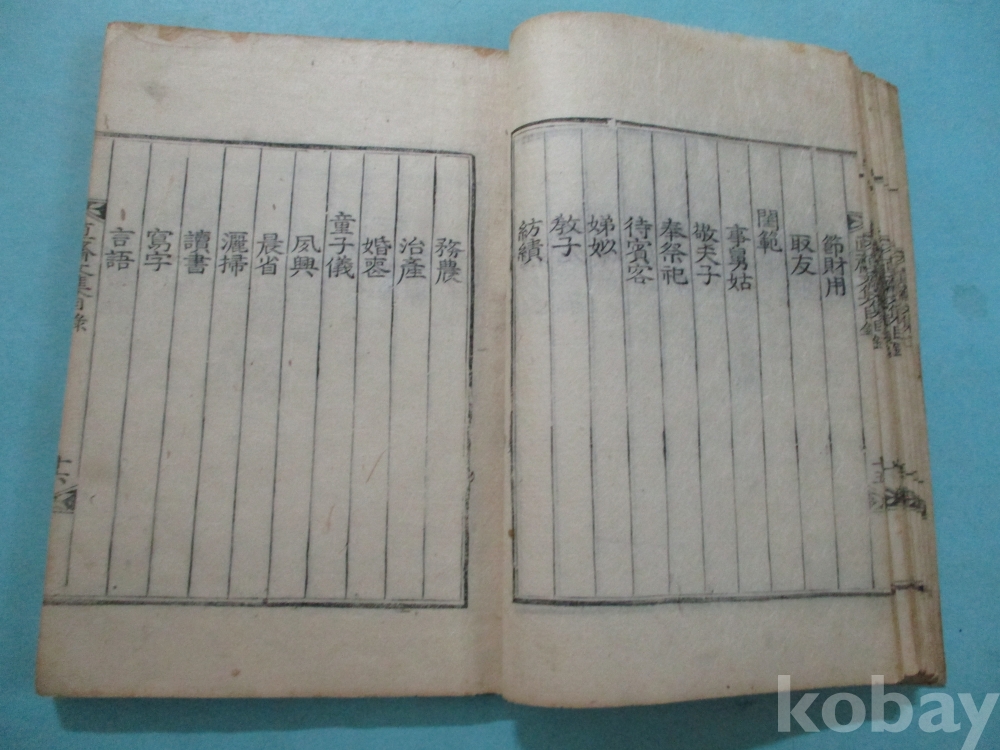 節財用
取友
閨範
事舅姑
敬夫子
奉祭祀
待賓客
娣姒
敎子
紡績
務農
治產
婚喪
童子儀
夙興
晨省
灑掃
讀書
寫字
言語
文集目錄
十六
kobay